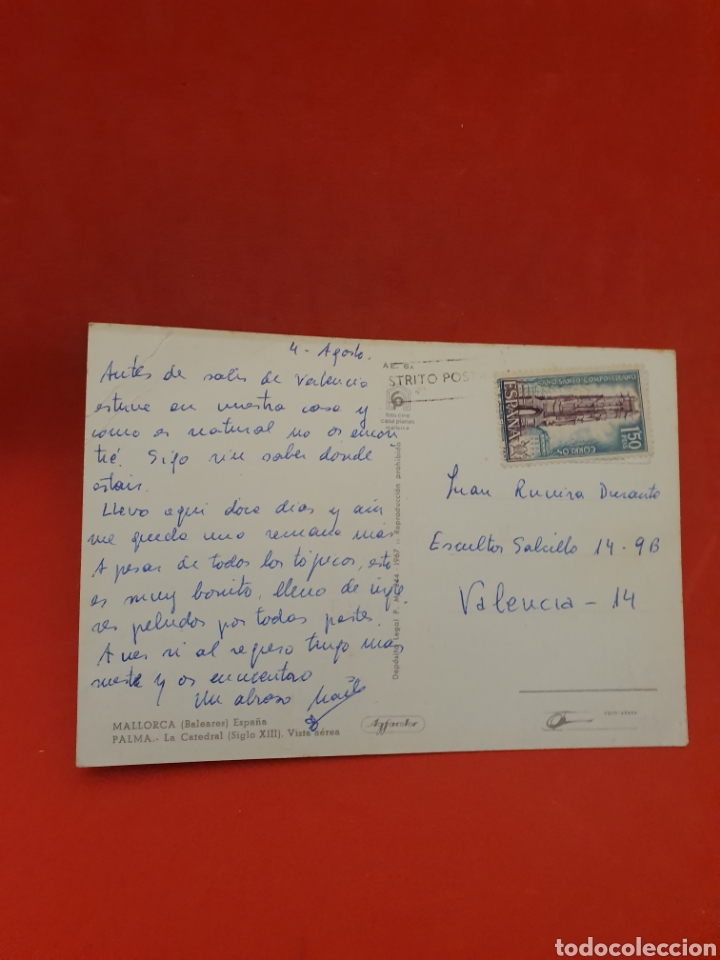 4 - Agosto.
Antes de salir de Valencia
estuve en vuestra casa y
como es natural no os encon
tré. Sigo sin saber donde
estais.
Llevo aqui doce dias y aún
me queda una semana más.
A pesar de todos los tópicos, esto
es muy bonito, lleno de ingle
ses peludos por todas partes.
A ver si al regreso tengo más
suerte y os encuentro
Un abrazo
MALLORCA (Baleares) España
PALMA.- La Catedral (Siglo XIII). Vista aérea
Depósito Legal P. M. 1967 - Reproducción prohibida
STRITO POS
6
foto cine
casa planas
ESPAÑA
CORREOS
1'50
PTAS
Juan Durante
Escultor Salcillo 14 - 9B
Valencia - 14
todocoleccion